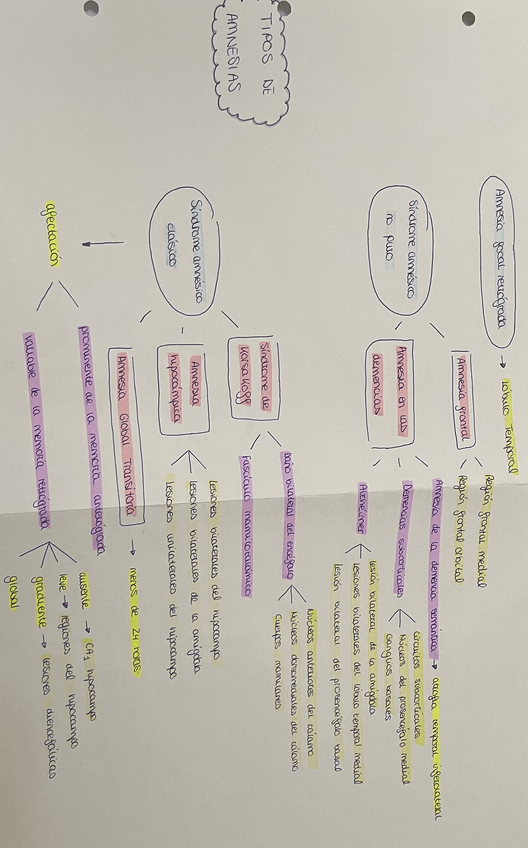 TIPOS DE
AMNESIAS
Amnesia focal retrógrada → Lóbulo Temporal
Síndrome amnésico
no puro
Amnesia frontal
Región frontal medial
Región frontal orbital
Amnesia en las
demencias
Amnesia de la demencia semántica → atrofia temporal inferolateral
Demencias subcorticales
Circuitos subcorticales
Núcleos del prosencéfalo medial
Ganglios basales
Alzheimer
Lesión bilateral de la amígdala
Lesiones bilaterales del lóbulo temporal medial
Lesión bilateral del prosencéfalo basal
Síndrome amnésico
clásico
Síndrome de
Korsakoff
Daño bilateral del encéfalo
Núcleos anteriores del tálamo
Núcleos dorsomediales del tálamo
Cuerpos mamilares
Fascículo mamilotalámico
Amnesia
hipocámpica
Lesiones bilaterales del hipocampo
Lesiones bilaterales de la amígdala
Lesiones unilaterales del hipocampo
Amnesia Global Transitoria → menos de 24 horas
afectación
prominente de la memoria anterógrada
variable de la memoria retrógrada
ausente → CA1 hipocampo
leve → regiones del hipocampo
gradiente → lesiones diencefálicas
global